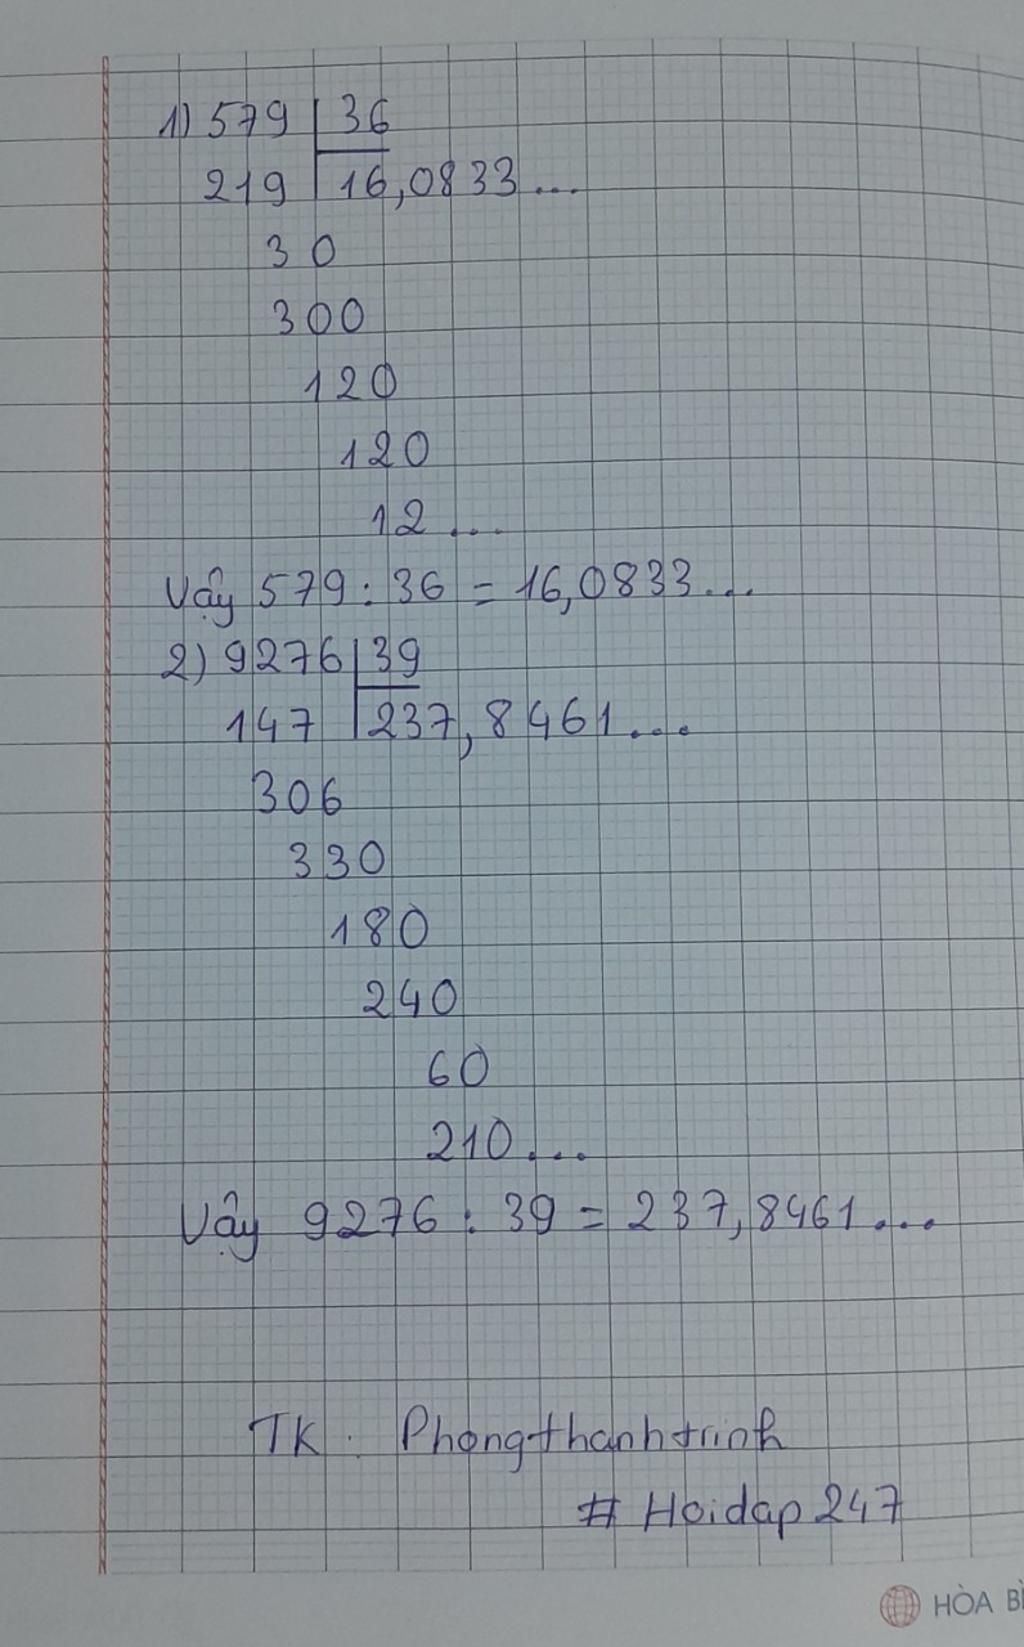 1) 579 36
219 16,0833...
30
300
120
120
12...
Vậy 579 : 36 = 16,0833...
2) 9276 39
147 237,8461...
306
330
180
240
60
210...
Vậy 9276 : 39 = 237,8461...
TK: Phongthanhtrinh
# Hoidap247
HÒA BÌ